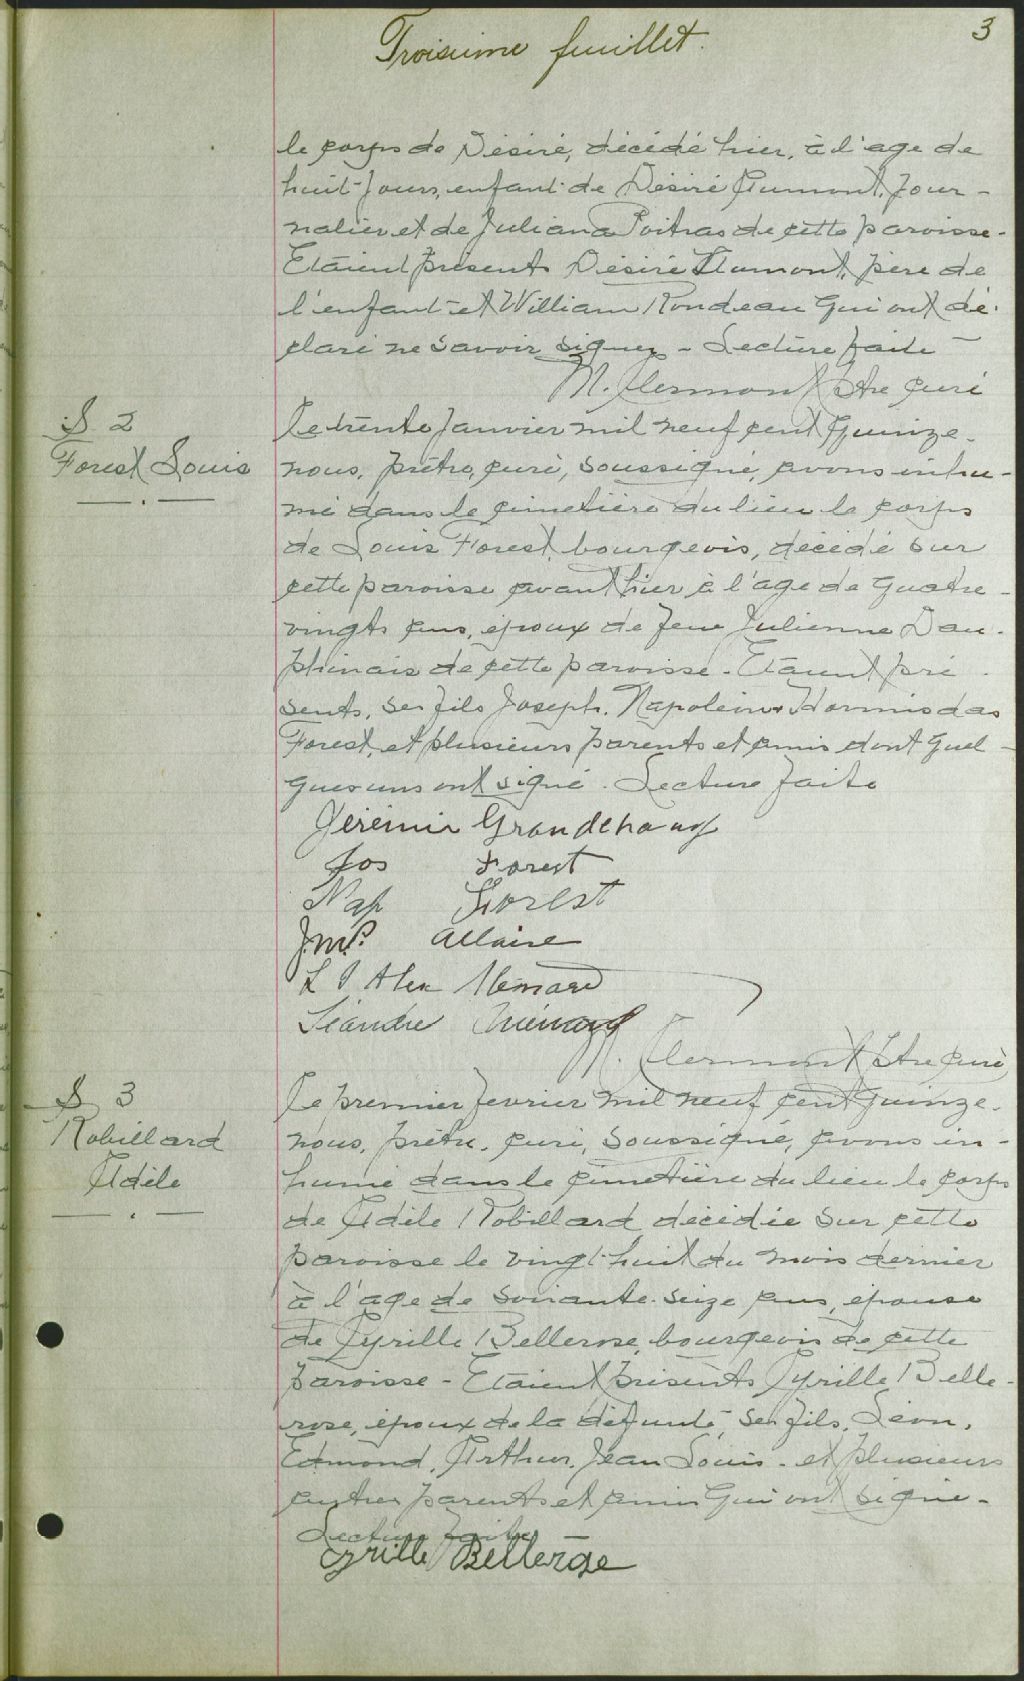 3
Troisieme feuillet.
le corps de Désiré, décédé hier, à l'age de
huit jours, enfant de Désiré Aumont, jour-
nalier et de Juliana Poitras de cette paroisse-
Etaient présents Désiré Aumont, père de
l'enfant et William Rondeau qui ont dé-
claré ne savoir signer - Lecture faite -
M. Clermont Ptre curé
S 2
Forest Louis
Le trente Janvier mil neuf cent quinze-
nous, prêtre, curé, soussigné, avons inhu-
mé dans le cimetière du lieu le corps
de Louis Forest, bourgeois, décédé sur
cette paroisse avant hier à l'age de quatre-
vingts ans, epoux de feue Julienne Dau-
phinais de cette paroisse - Etaient pré-
sents, ses fils Joseph, Napoléon & Hormisdas
Forest, et plusieurs parents et amis dont quel-
ques uns ont signé. Lecture faite
Jérémie Grandchamp
Jos Forest
Nap Forest
J.M.P. Allaire
Alex
Léandre Ménard
M. Clermont Ptre curé
S 3
Robillard
Adèle
Le premier fevrier mil neuf cent quinze-
nous, prêtre, curé, soussigné, avons in-
humé dans le cimetière du lieu le corps
de Adèle Robillard décédée sur cette
paroisse le vingt-huit du mois dernier
à l'age de soixante-seize ans, epouse
de Cyrille Bellerose, bourgeois de cette
paroisse - Etaient présents Cyrille Belle-
rose, époux de la défunte, ses fils, Léon,
Edmond, Arthur, Jean Louis - et plusieurs
autres parents et amis qui ont signé -
Lecture faite
Cyrille Bellerose